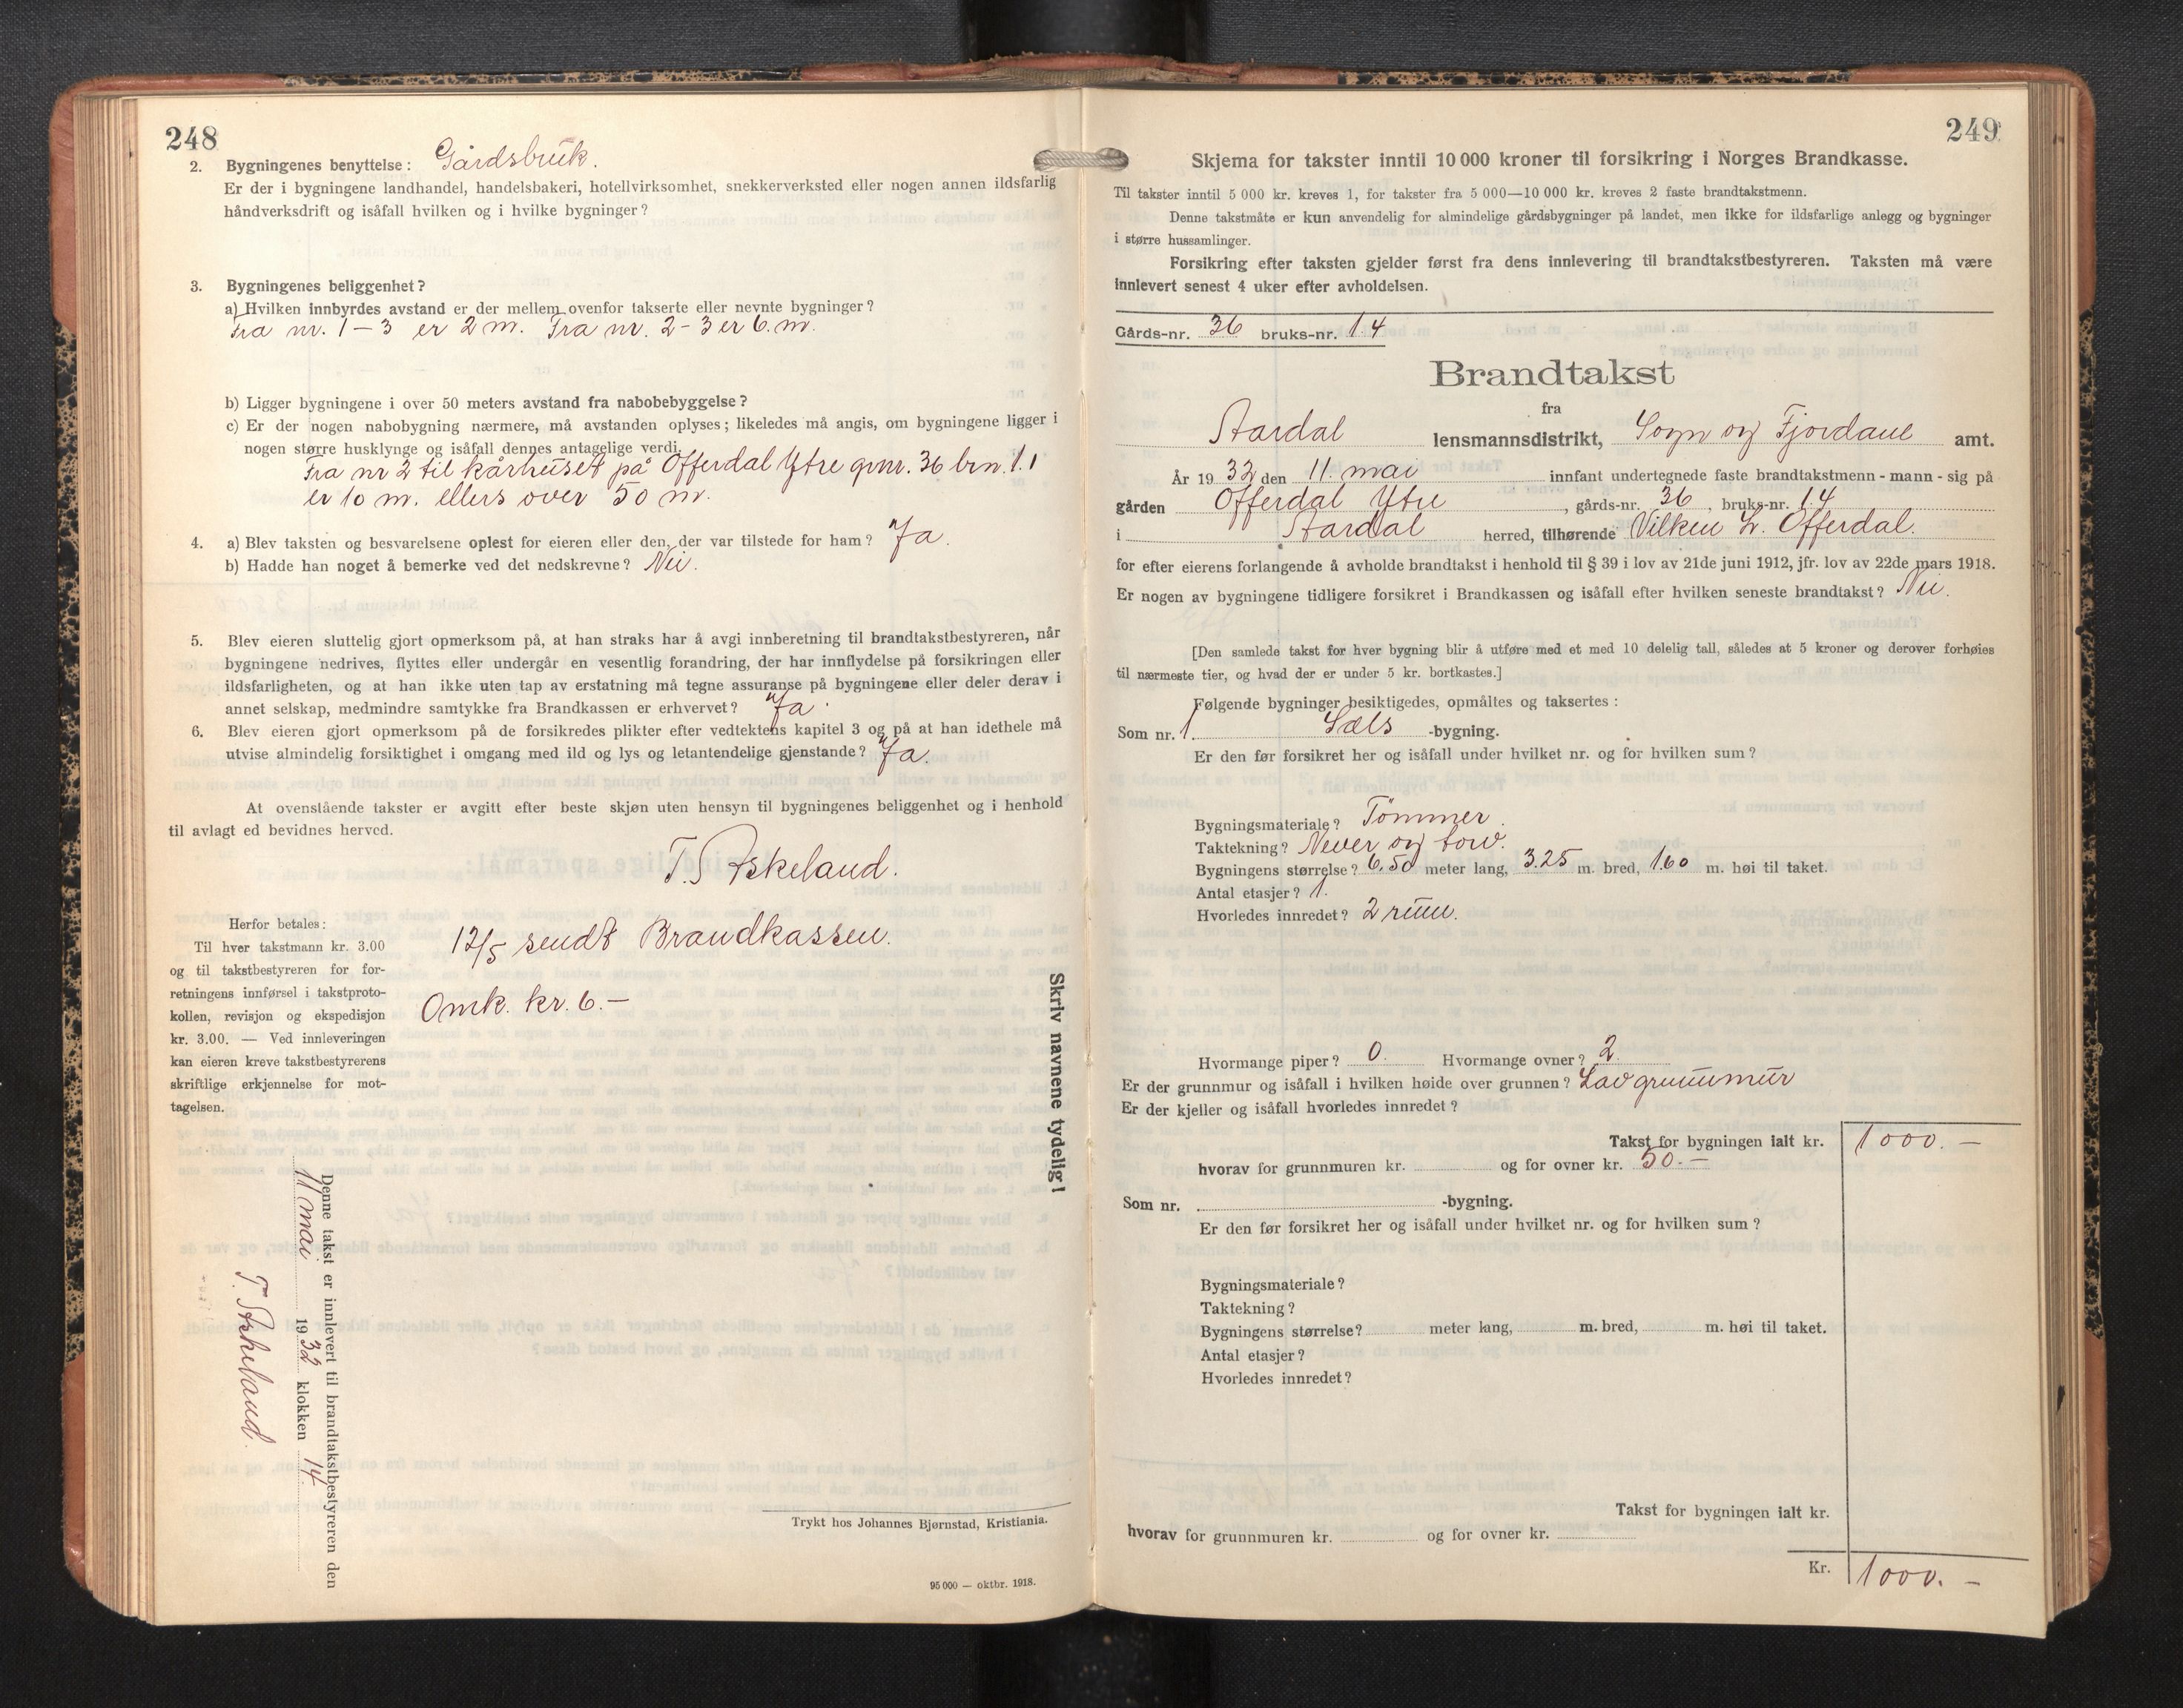 248
2. Bygningenes benyttelse: Gårdsbruk.
Er der i bygningene landhandel, handelsbakeri, hotellvirksomhet, snekkerverksted eller nogen annen ildsfarlig
håndverksdrift og isåfall hvilken og i hvilke bygninger?
3. Bygningenes beliggenhet?
a) Hvilken innbyrdes avstand er der mellem ovenfor takserte eller nevnte bygninger?
Fra nr. 1 – 3 er 2 m. Fra nr. 2 – 3 er 6. m.
b) Ligger bygningene i over 50 meters avstand fra nabobebyggelse?
c) Er der nogen nabobygning nærmere, må avstanden oplyses; likeledes må angis, om bygningene ligger i
nogen større husklynge og isåfall dennes antagelige verdi.
Fra nr 2 til kårhuset på Offerdal Ytre grnr. 36 brn. 1.1
er 10 m. ellers over 50 m.
4. a) Blev taksten og besvarelsene oplest for eieren eller den, der var tilstede for ham? Ja.
b) Hadde han noget å bemerke ved det nedskrevne? Nei.
5. Blev eieren sluttelig gjort opmerksom på, at han straks har å avgi innberetning til brandtakstbestyreren, når
bygningene nedrives, flyttes eller undergår en vesentlig forandring, der har innflydelse på forsikringen eller
ildsfarligheten, og at han ikke uten tap av erstatning må tegne assuranse på bygningene eller deler derav i
annet selskap, medmindre samtykke fra Brandkassen er erhvervet? Ja.
6. Blev eieren gjort opmerksom på de forsikredes plikter efter vedtektens kapitel 3 og på at han idethele må
utvise almindelig forsiktighet i omgang med ild og lys og letantendelige gjenstande? Ja.
At ovenstående takster er avgitt efter beste skjøn uten hensyn til bygningenes beliggenhet og i henhold
til avlagt ed bevidnes herved.
T. Askeland.
Herfor betales:
Til hver takstmann kr. 3.00
og til takstbestyreren for for-
retningens innførsel i takstproto-
kollen, revisjon og ekspedisjon
kr. 3.00. — Ved innleveringen
kan eieren kreve takstbestyrerens
skriftlige erkjennelse for mot-
tagelsen.
12/5 sendt Brandkassen.
Omk. kr. 6.–
Skriv navnene tydelig!
Denne takst er innlevert til brandtakstbestyreren den
11 mai 1932 klokken 14.
T. Askeland.
Trykt hos Johannes Bjørnstad, Kristiania.
95 000 — oktbr. 1918.
249
Skjema for takster inntil 10 000 kroner til forsikring i Norges Brandkasse.
Til takster inntil 5 000 kr. kreves 1, for takster fra 5 000—10 000 kr. kreves 2 faste brandtakstmenn.
Denne takstmåte er kun anvendelig for almindelige gårdsbygninger på landet, men ikke for ildsfarlige anlegg og bygninger
i større hussamlinger.
Forsikring efter taksten gjelder først fra dens innlevering til brandtakstbestyreren. Taksten må være
innlevert senest 4 uker efter avholdelsen.
Gårds-nr. 36 bruks-nr. 1.4
Brandtakst
fra
Aardal lensmannsdistrikt, Sogn og Fjordane amt.
År 1932 den 11. mai innfant undertegnede faste brandtakstmenn - mann - sig på
gården Offerdal Ytre, gårds-nr. 36, bruks-nr. 1.4
i Aardal herred, tilhørende Vilken L. Offerdal.
for efter eierens forlangende å avholde brandtakst i henhold til § 39 i lov av 21de juni 1912, jfr. lov av 22de mars 1918.
Er nogen av bygningene tidligere forsikret i Brandkassen og isåfall efter hvilken seneste brandtakst? Nei.
[Den samlede takst for hver bygning blir å utføre med et med 10 delelig tall, således at 5 kroner og derover forhøies
til nærmeste tier, og hvad der er under 5 kr. bortkastes.]
Følgende bygninger besiktigedes, opmåltes og taksertes:
Som nr. 1. Sæls -bygning.
Er den før forsikret her og isåfall under hvilket nr. og for hvilken sum?
Bygningsmateriale? Tömmer.
Taktekning? Never og torv.
Bygningens størrelse? 6,50 meter lang, 3.25 m. bred, 1.60 m. høi til taket.
Antal etasjer? 1.
Hvorledes innredet? 2 rum.
Hvormange piper? 0. Hvormange ovner? 2.
Er der grunnmur og isåfall i hvilken høide over grunnen? Lav grunnmur
Er der kjeller og isåfall hvorledes innredet?
Takst for bygningen ialt kr. 1000. –
hvorav for grunnmuren kr. og for ovner kr. 50.–
Som nr. -bygning.
Er den før forsikret her og isåfall under hvilket nr. og for hvilken sum?
Bygningsmateriale?
Taktekning?
Bygningens størrelse? meter lang, m. bred, m. høi til taket.
Antal etasjer?
Hvorledes innredet?
Takst for bygningen ialt kr.
hvorav for grunnmuren kr. og for ovner kr.
Kr. 1000. –